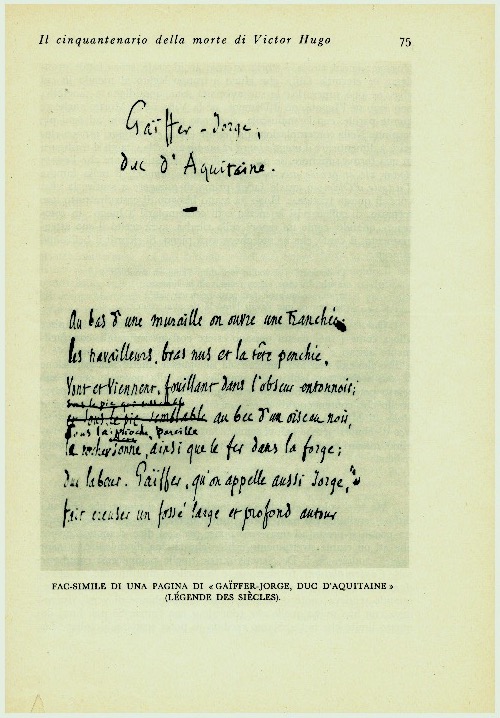 Il cinquantenario della morte di Victor Hugo 75
Gaïffer-Jorge,
duc d'Aquitaine.
Au bas d'une muraille on ouvre une tranchée.
les travailleurs, bras nus et la tête penchée,
Vont et viennent, fouillant dans l'obscur entonnoir;
sous le pic
et sous le pic semblable au bec d'un oiseau noir,
sous la pioche, pareille
le rocher sonne, ainsi que le fer dans la forge;
Duc labour. Gaïffer, qu'on appelle aussi Jorge,
fait creuser un fossé large et profond autour
FAC-SIMILE DI UNA PAGINA DI « GAÏFFER-JORGE, DUC D'AQUITAINE »
(LÉGENDE DES SIÈCLES).